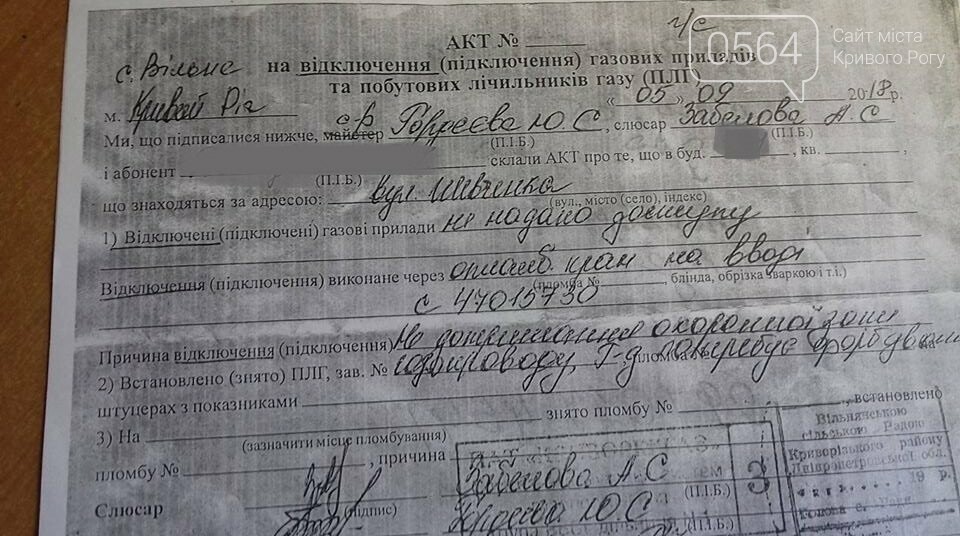 г/с
0564 Сайт міста
Кривого Рогу
АКТ № ______
с. Вільне на відключення (підключення) газових приладів
та побутових лічильників газу (ПЛГ
м. Кривой Ріг «05» 09 2018р.
Ми, що підписалися нижче, майстер с.р. Ю.С, слюсар Забелова А.С
(П.І.Б.) (П.І.Б.)
і абонент склали АКТ про те, що в буд. , кв. ______,
(П.І.Б.)
що знаходяться за адресою: вул. Шевченка
(вул., місто (село), індекс)
1) Відключені (підключені) газові прилади не надано доступу
Відключення (підключення) виконане через опломб. кран на вводі
(пломба № ______, блінда, обрізка зваркою і т.і.)
с 47015730
Причина відключення (підключення) Не дотримання охоронної зони
2) Встановлено (знято) ПЛГ, зав. № газопроводу, Г-д потребує фарбування
пломба №
штуцерах з показниками
3) На ______ знято пломбу № ______, встановлено
(зазначити місце пломбування)
пломбу № ______, причина
Слюсар Забелова А.С
(підпис) (П.І.Б.)
Ю.С
(П.І.Б.)
3
Вільнянською
сільською Радою
Криворізького району
Дніпропетровської обл.
19 р.